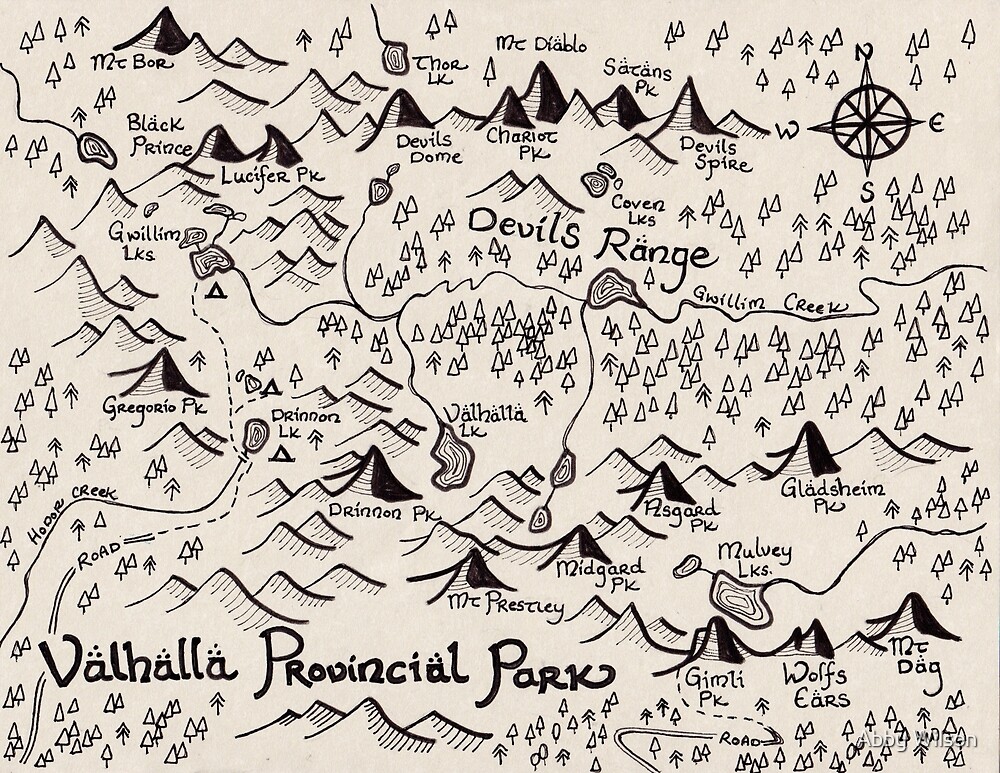 N
W
E
S
Mt Bor
Thor
Lk
Mt Diäblo
Sätäns
Pk
Bläck
Prince
Lucifer Pk
Devils
Dome
Chariot
Pk
Devils
Spire
Gwillim
Lks.
Coven
Lks
Devils Ränge
Gwillim Creek
Gregorio Pk
Drinnon
Lk
Välhällä
Lk
Drinnon Pk
Asgard
Pk
Glädsheim
Pk
Hodor Creek
Road
Midgard
Pk
Mulvey
Lks.
Mt Prestley
Välhällä Provinciäl Park
Gimli
Pk
Wolfs
Ears
Mt
Däg
Road
Abby Wilson